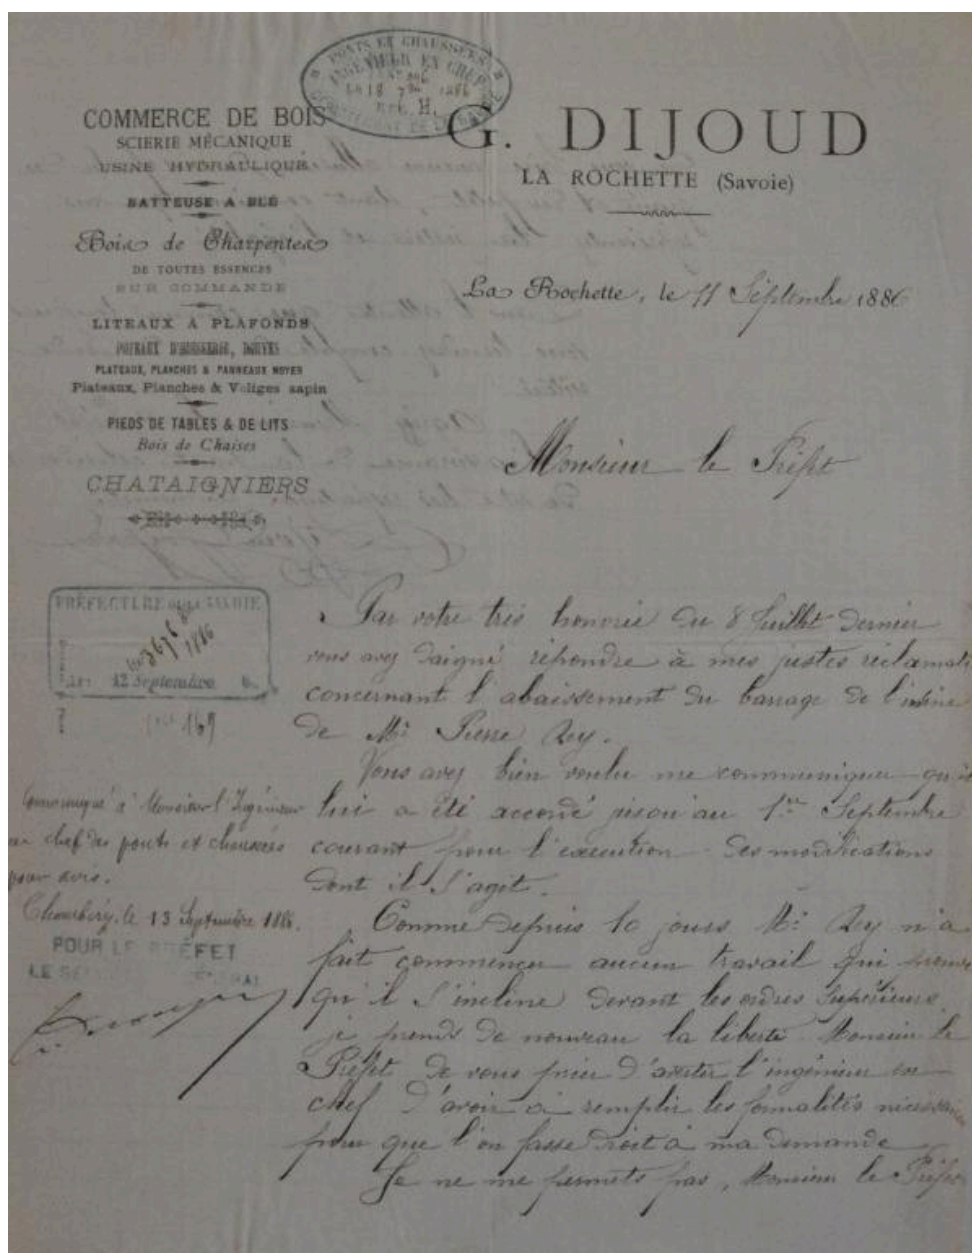 PONTS ET CHAUSSÉES
INGÉNIEUR EN CHEF
18 7bre 1886
H.
COMMERCE DE BOIS
SCIERIE MÉCANIQUE
USINE HYDRAULIQUE
BATTEUSE A BLÉ
Bois de Charpentes
DE TOUTES ESSENCES
SUR COMMANDE
LITEAUX A PLAFONDS
POTEAUX D'HUISSERIE, DOUVES
PLATEAUX, PLANCHES & PANNEAUX NOYER
Plateaux, Planches & Voliges sapin
PIEDS DE TABLES & DE LITS
Bois de Chaises
CHATAIGNIERS
G. DIJOUD
LA ROCHETTE (Savoie)
La Rochette, le 11 Septembre 1886
Monsieur le Préfet
PRÉFECTURE DE LA SAVOIE
3676
1886
12 Septembre
169
Communiqué à Monsieur l'Ingénieur
en chef des ponts et chaussées
pour avis.
Chambéry, le 13 Septembre 1886.
POUR LE PRÉFET
LE
Par votre très honorée du 8 Juillet dernier
vous avez daigné répondre à mes justes réclamati
concernant l'abaissement du barrage de l'usine
de Mr Pierre Rey.
Vous avez bien voulu me communiquer qu'il
lui a été accordé jusqu'au 1er Septembre
courant pour l'exécution des modifications
dont il s'agit.
Comme depuis 10 jours Mr Rey n'a
fait commencer aucun travail qui prouve
qu'il s'incline devant les ordres supérieurs,
je prends de nouveau la liberté Monsieur le
Préfet de vous prier d'aviser l'ingénieur en
chef d'avoir à remplir les formalités nécessaires
pour que l'on fasse droit à ma demande
Je ne me permets pas, Monsieur le Préfet